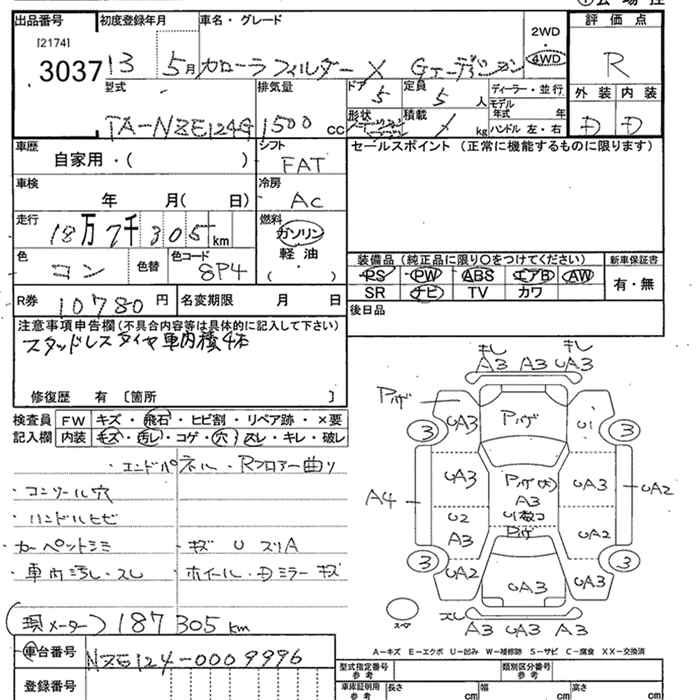 出品番号 初度登録年月 車名・グレード 評価点
[2174] 2WD
3037 13 5月 カローラフィルダー X Gエディション 4WD R
型式 排気量 ドア 5 定員 5人 ディーラー・並行 外装 内装
モデル年式 年
TA-NZE124G 1500 cc 形状 積載 kg ハンドル 左・右 D D
車歴 シフト セールスポイント(正常に機能するものに限ります)
自家用・( ) FAT
車検 冷房
年 月( 日) AC
走行 燃料
18万7千305km ガソリン
色 色替 色コード 軽油 装備品(純正品に限り○をつけてください) 新車保証書
コン 8P4 ( ・ ) PS PW ABS エアB AW 有・無
R券 10780円 名変期限 月 日 SR ナビ TV カワ
注意事項申告欄(不具合内容等は具体的に記入して下さい) 後日品
スタッドレスタイヤ車内積4本
修復歴 有 〔箇所 〕
検査員 FW キズ・飛石・ヒビ割・リペア跡・×要
記入欄 内装 キズ・汚レ・コゲ・穴・スレ・キレ・破レ
・エンドパネル・Rフロアー曲リ
・コンソール穴
・ハンドルヒビ
・カーペットシミ ・キズ U スリA
・車内汚レ・スレ ・ホイール・Dミラーキズ
(現メーター) 187305km
車台番号 NZE124-0009996
登録番号
キレ キレ
A3 A3 A3
Pハゲ UA3 Pハゲ U1
3 3
UA3 Pハゲ(大) UA3
A4 A3 UA2
U2 U1数コ
A3 Pハゲ UA2
3 3
UA2 UA3 UA3
スレ
スペア A3 UA3 A3
A-キズ E-エクボ U-凹み W-補修跡 S-サビ C-腐食 XX-交換済
型式指定番号 参考 類別区分番号 参考
車庫証明用 参考 長さ cm 幅 cm 高さ cm